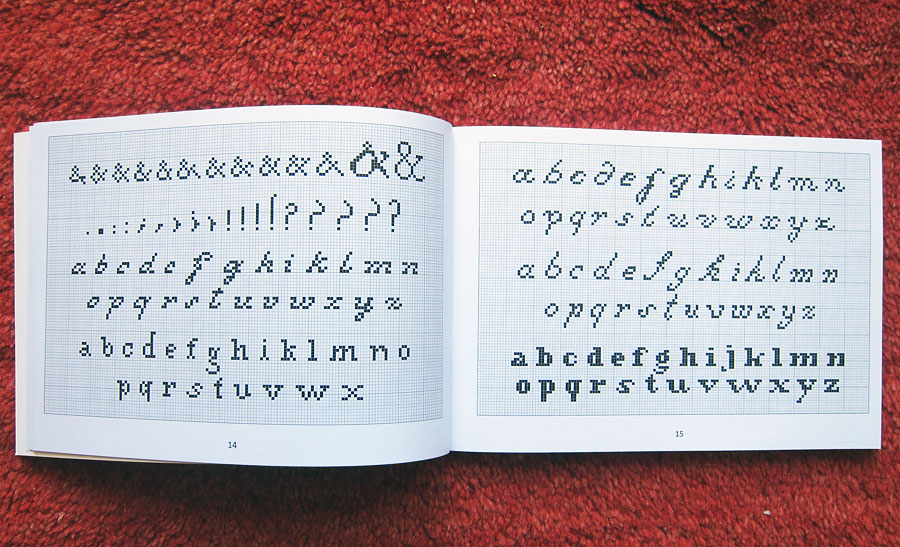 & & & & & & & & & & & & &
. . : : ; , , ; ; ! ! ! ! ? ? ? ? ?
a b c d e f g h i k l m n
o p q r s t u v w x y z
a b c d e f g h i k l m n o
p q r s t u v w x
14
a b c d e f g h i k l m n
o p q r s t u v w x y z
a b c d e f g h i k l m n
o p q r s t u v w x y z
a b c d e f g h i j k l m n
o p q r s t u v w x y z
15